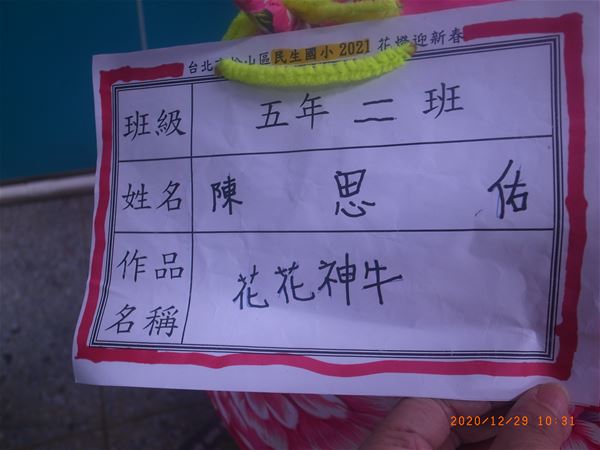 台北市松山區民生國小 2021 花燈迎新春
班級 五年 二 班
姓名 陳 思 佑
作品名稱 花花神牛
2020/12/29 10:31